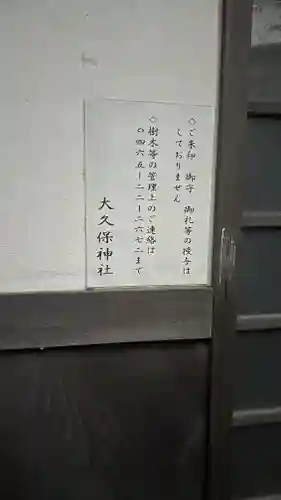 ◇ご朱印 御守 御札等の授与は
しておりません
◇樹木等の管理上のご連絡は
〇四六五ー二二ー二六七二まで
大久保神社